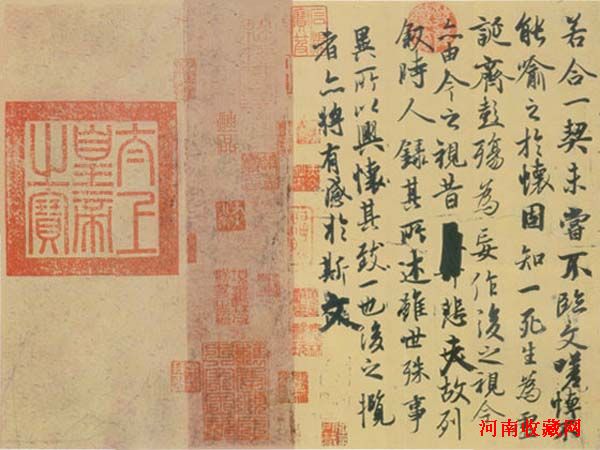 若合一契未嘗不臨文嗟悼不
能喻之於懷固知一死生為虛
誕齊彭殤為妄作後之視今
亦由今之視昔悲夫故列
敘時人錄其所述雖世殊事
異所以興懷其致一也後之攬
者亦將有感於斯文
太上
皇帝
之寶
河南收藏网